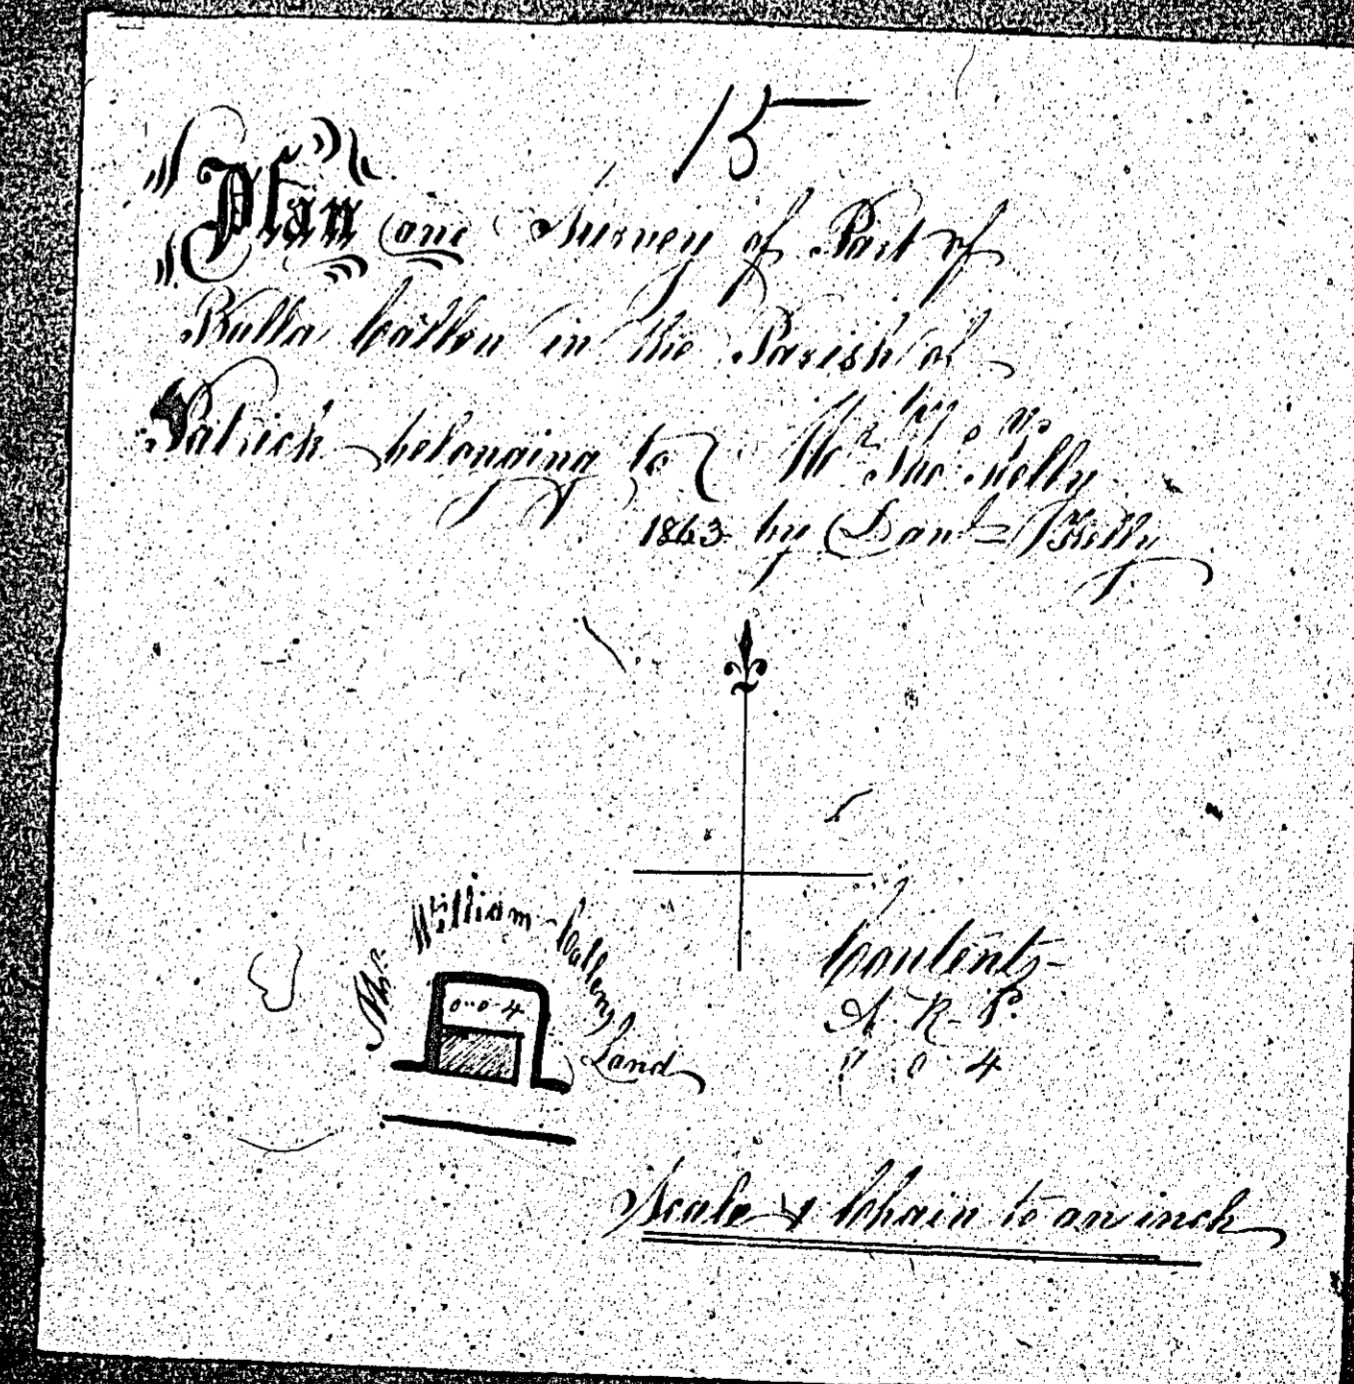 15
Plan and Survey of Part of
Balla Callen in the Parish of
Patrick belonging to Mr Jno Kelly
1863 by Danl Kelly
Mr William Callens Land
0-0-4
Contents
A. R. P.
0 0 4
Scale 1 Chain to an inch